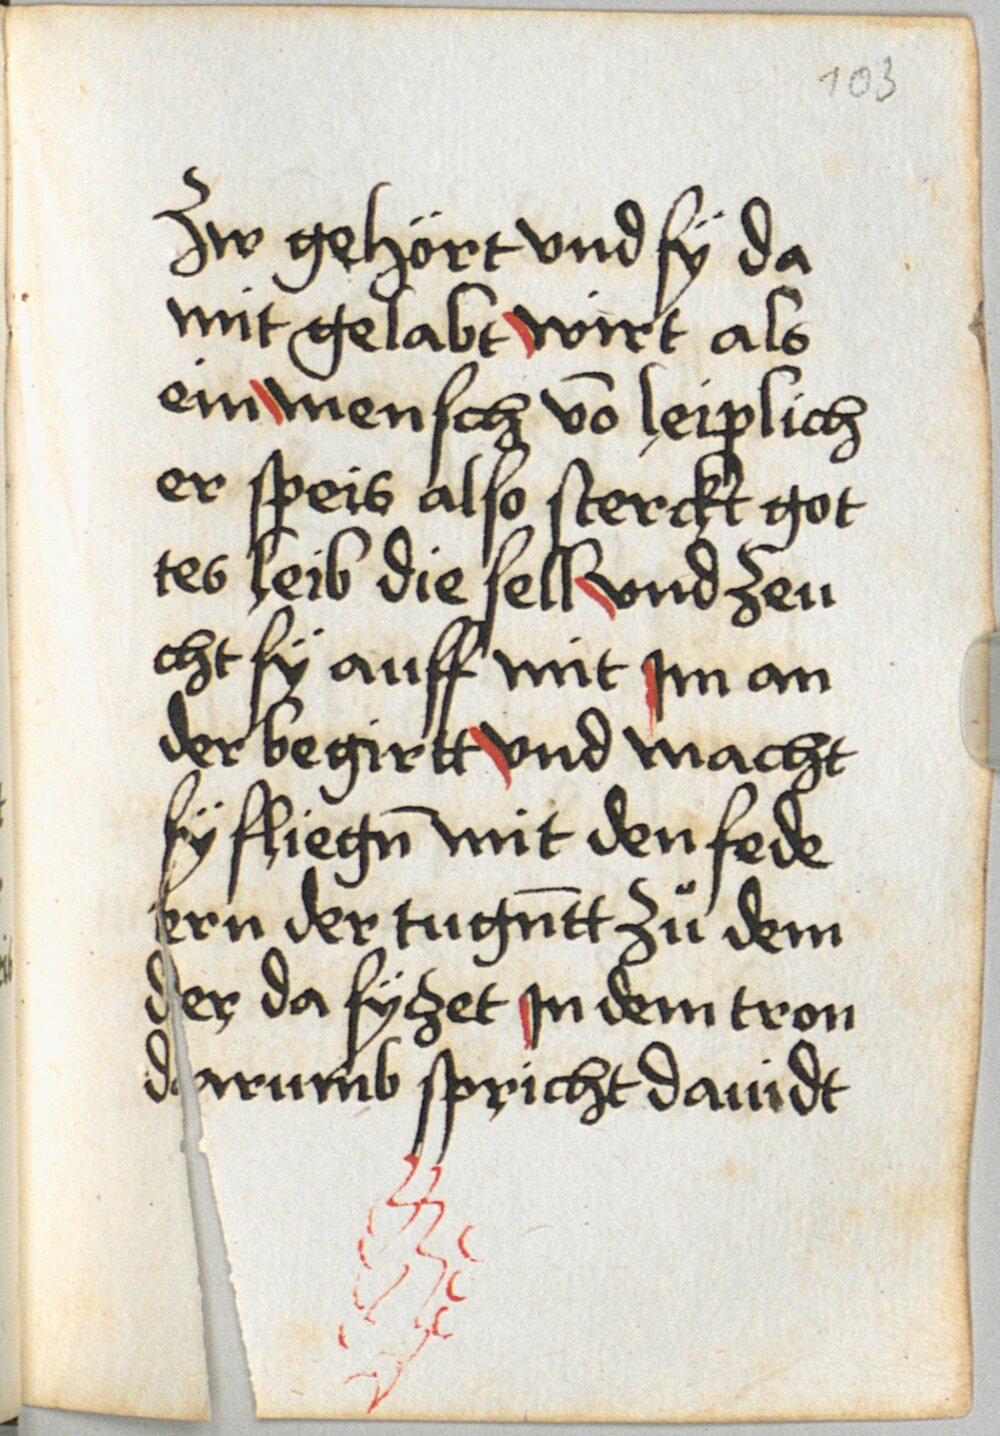 103
Zw gehört vnd sÿ da
mit gelabt wirt als
ein mensch vō leiplich
er speis also sterckt got
tes leib die sell vnd zeu
cht sÿ auff mit Im an
der begirtt vnd macht
sÿ fliegn̄ mit den fede
ern der tugn̄tt zů dem
der da sÿtzet In dem tron
darumb spricht dauidt